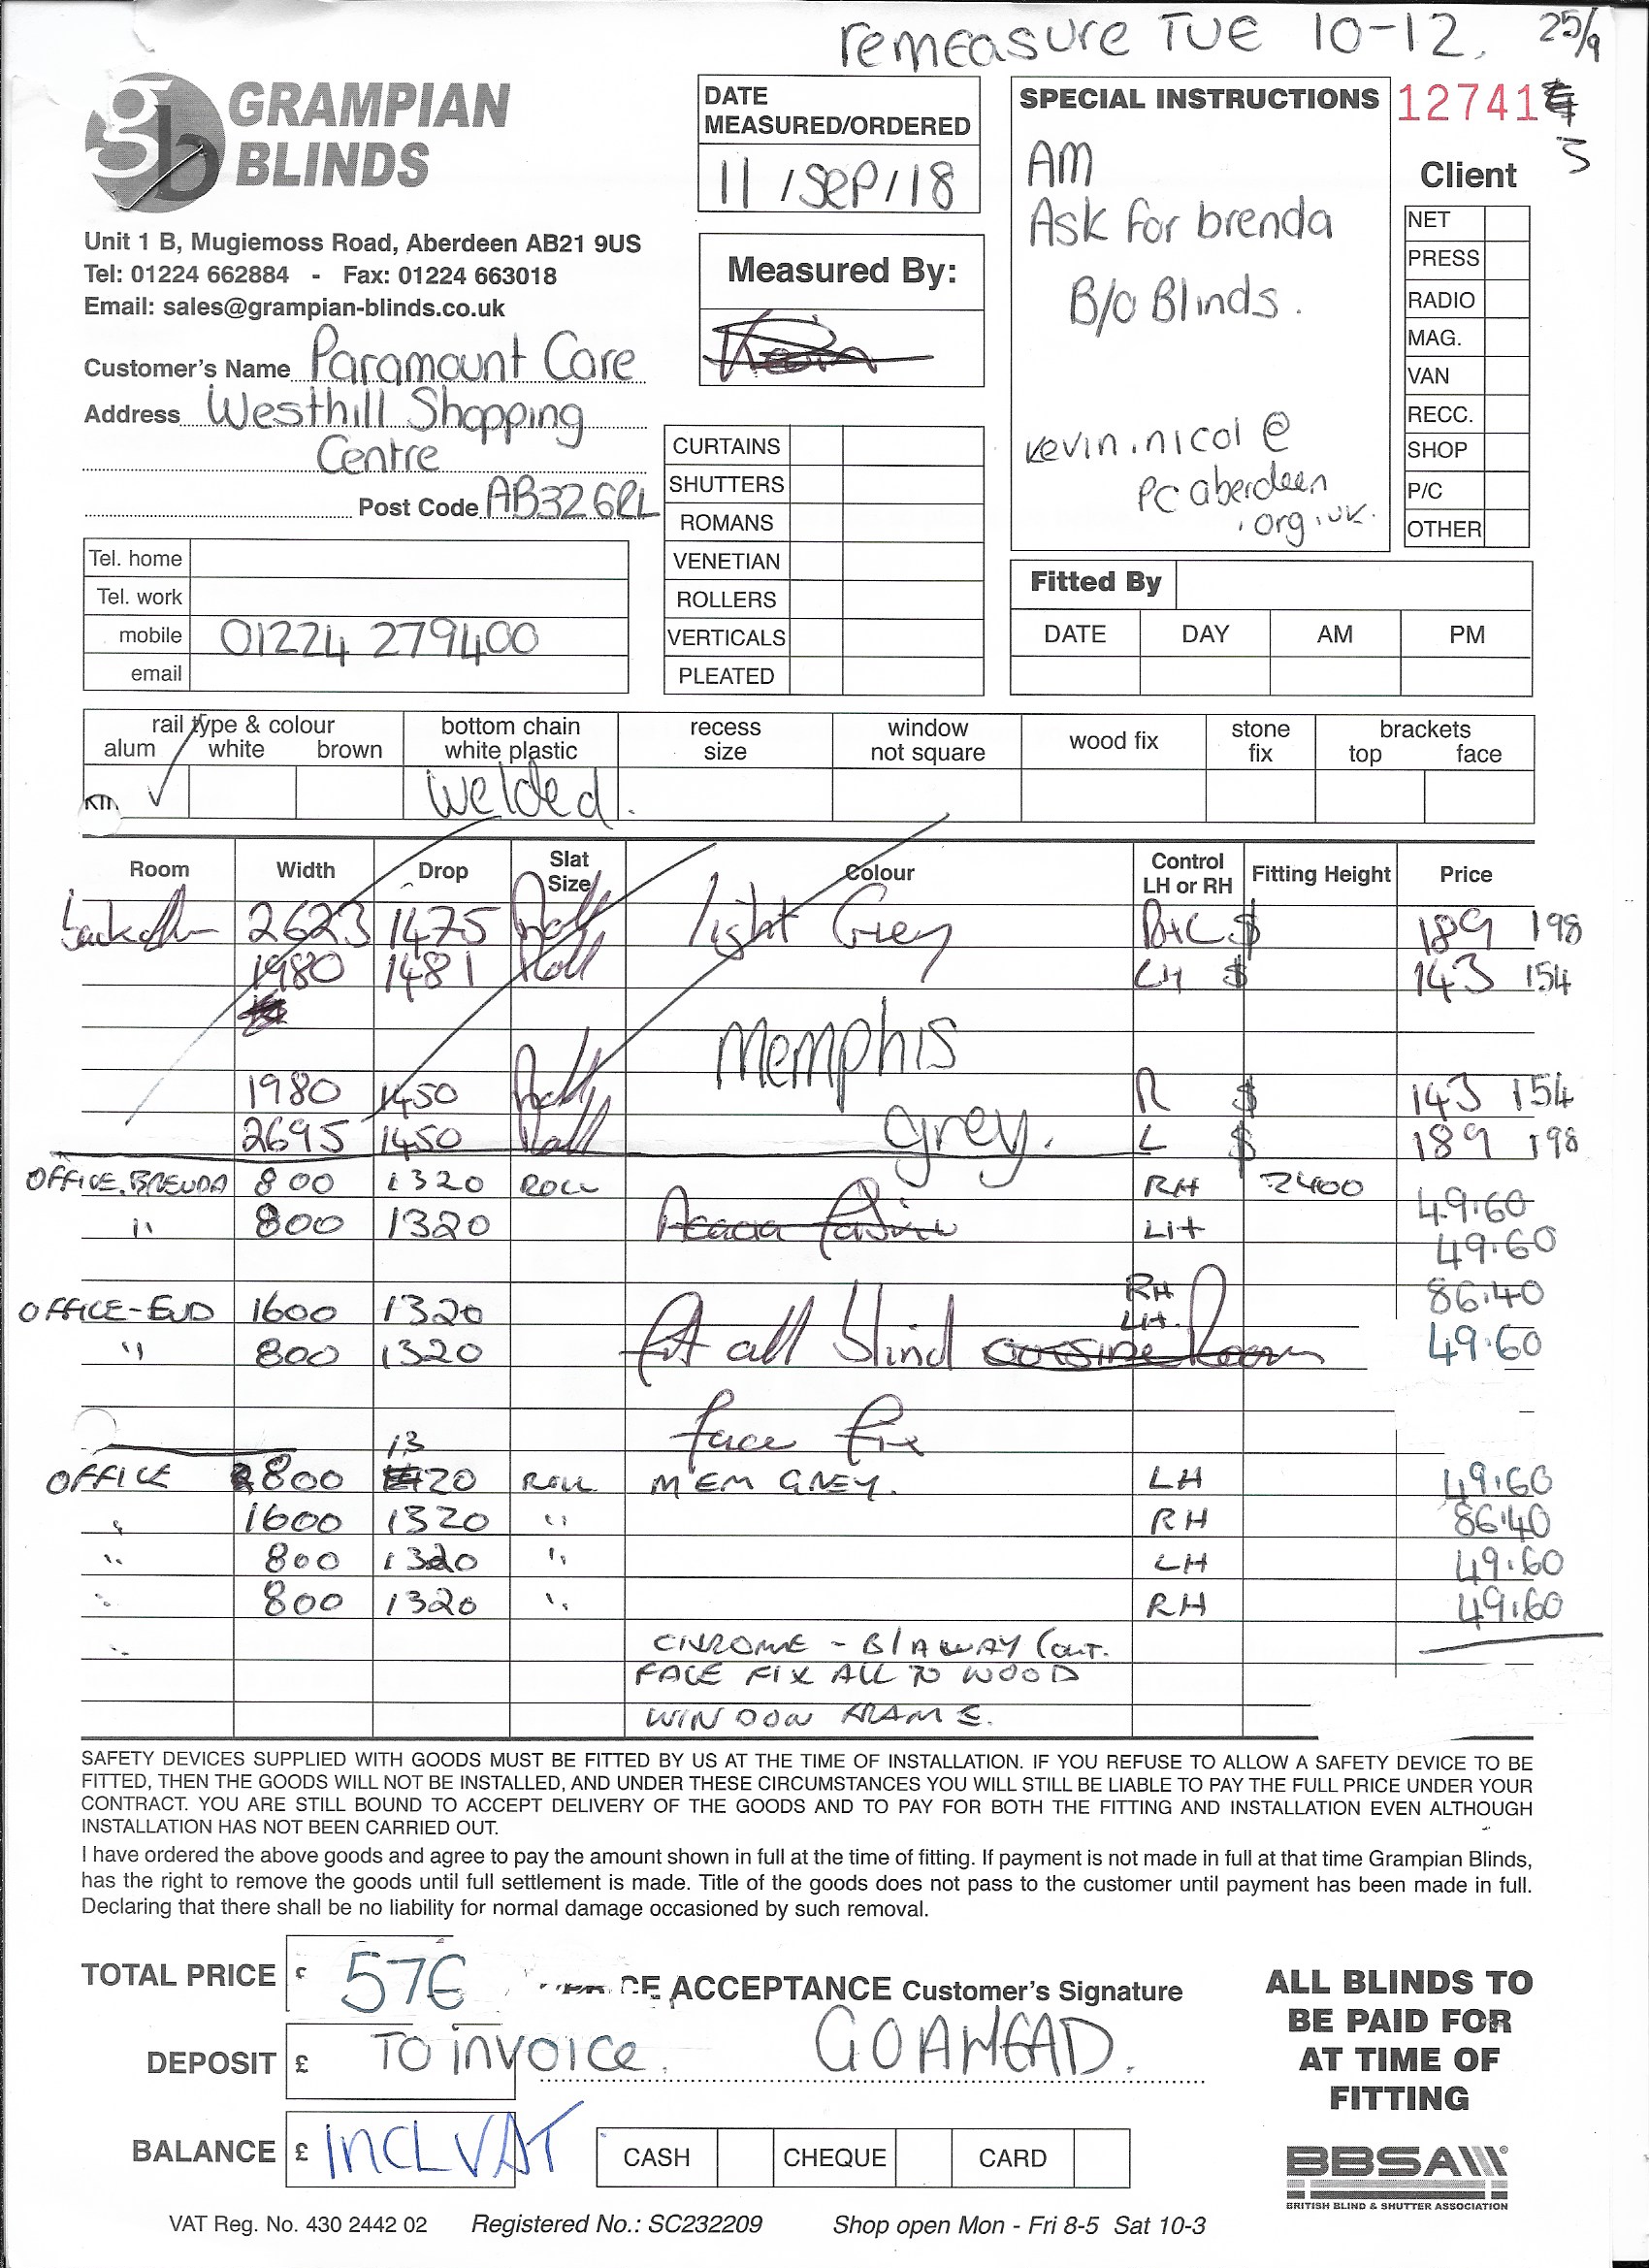 remeasure TUE 10-12. 25/9
GRAMPIAN
BLINDS
Unit 1 B, Mugiemoss Road, Aberdeen AB21 9US
Tel: 01224 662884 - Fax: 01224 663018
Email: sales@grampian-blinds.co.uk
Customer's Name Paramount Care
Address Westhill Shopping
Centre
Post Code AB32 6RL
Tel. home
Tel. work
mobile 01224 279400
email
DATE
MEASURED/ORDERED
11 / SEP / 18
Measured By:
CURTAINS
SHUTTERS
ROMANS
VENETIAN
ROLLERS
VERTICALS
PLEATED
SPECIAL INSTRUCTIONS
AM
Ask for brenda
B/O Blinds.
kevin.nicol@
pcaberdeen
.org.uk.
12741
5
Client
NET
PRESS
RADIO
MAG.
VAN
RECC.
SHOP
P/C
OTHER
Fitted By
DATE DAY AM PM
rail type & colour
alum white brown
bottom chain
white plastic
welded.
recess
size
window
not square
wood fix
stone
fix
brackets
top face
Room Width Drop Slat Size Colour Control LH or RH Fitting Height Price
2623 1475 Roll light Grey $ 189 198
1980 1481 Roll LH $ 143 154
Memphis
1980 1450 Roll R $ 143 154
2695 1450 Roll grey. L $ 189 198
OFFICE.BRENDA 800 1320 ROLL RH 2400 49.60
" 800 1320 LH 49.60
OFFICE-END 1600 1320 RH 86.40
" 800 1320 LH. 49.60
fit all blind outside Room
face fix
OFFICE 800 1320 ROLL MEM GREY. LH 49.60
" 1600 1320 " RH 86.40
" 800 1320 " LH 49.60
" 800 1320 " RH 49.60
" CHROME - B/AWAY CONT.
FACE FIX ALL TO WOOD
WINDOW FRAME.
SAFETY DEVICES SUPPLIED WITH GOODS MUST BE FITTED BY US AT THE TIME OF INSTALLATION. IF YOU REFUSE TO ALLOW A SAFETY DEVICE TO BE
FITTED, THEN THE GOODS WILL NOT BE INSTALLED, AND UNDER THESE CIRCUMSTANCES YOU WILL STILL BE LIABLE TO PAY THE FULL PRICE UNDER YOUR
CONTRACT. YOU ARE STILL BOUND TO ACCEPT DELIVERY OF THE GOODS AND TO PAY FOR BOTH THE FITTING AND INSTALLATION EVEN ALTHOUGH
INSTALLATION HAS NOT BEEN CARRIED OUT.
I have ordered the above goods and agree to pay the amount shown in full at the time of fitting. If payment is not made in full at that time Grampian Blinds,
has the right to remove the goods until full settlement is made. Title of the goods does not pass to the customer until payment has been made in full.
Declaring that there shall be no liability for normal damage occasioned by such removal.
TOTAL PRICE £ 576
ACCEPTANCE Customer's Signature
DEPOSIT £ TO invoice. GOAHEAD.
BALANCE £ INCL VAT
CASH CHEQUE CARD
ALL BLINDS TO
BE PAID FOR
AT TIME OF
FITTING
BBSA
BRITISH BLIND & SHUTTER ASSOCIATION
VAT Reg. No. 430 2442 02 Registered No.: SC232209 Shop open Mon - Fri 8-5 Sat 10-3